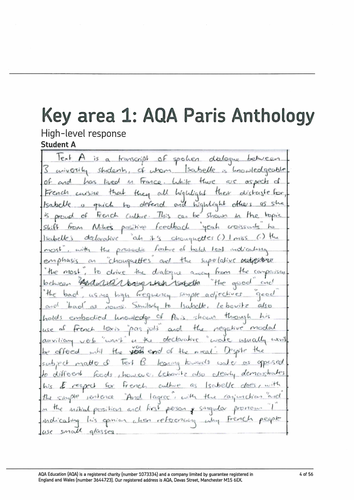 Key area 1: AQA Paris Anthology
High-level response
Student A
Text A is a transcript of spoken dialogue between
3 university students, of whom Isabelle is knowledgeable
of and has lived in France. While there are aspects of
French cuisine that they all highlight their distaste for
Isabelle is quick to defend and highlight others as she
is proud of French culture. This can be shown in the topic
shift from Mikes positive feedback "yeah croissants" to
Isabelle's declarative "oh it's chouquettes (.) mmm (.) the
most" with the prosodic feature of held text indicating
emphasis on "chouquettes" and the superlative adjective
"the most", to drive the dialogue away from the comparison
between "the good" and
"the bad", using high frequency simple adjectives "good"
and "bad" as nouns. Similarly to Isabelle, Lebowitz also
holds embodied knowledge of Paris shown through his
use of French lexis "pas puis" and the negative modal
auxiliary verb "won't" in the declarative "water usually won't
be offered until the very end of the meal". Despite the
subject matter of Text B being towards water as opposed
to different foods however, Lebowitz also clearly demonstrates
his respect for French culture as Isabelle does, with
the simple sentence "And I agree", with the conjunction "and"
in the initial position and first person singular pronoun "I"
indicating his opinion when referencing why French people
use small glasses.
AQA Education (AQA) is a registered charity (number 1073334) and a company limited by guarantee registered in
England and Wales (number 3644723). Our registered address is AQA, Devas Street, Manchester M15 6EX.
4 of 56